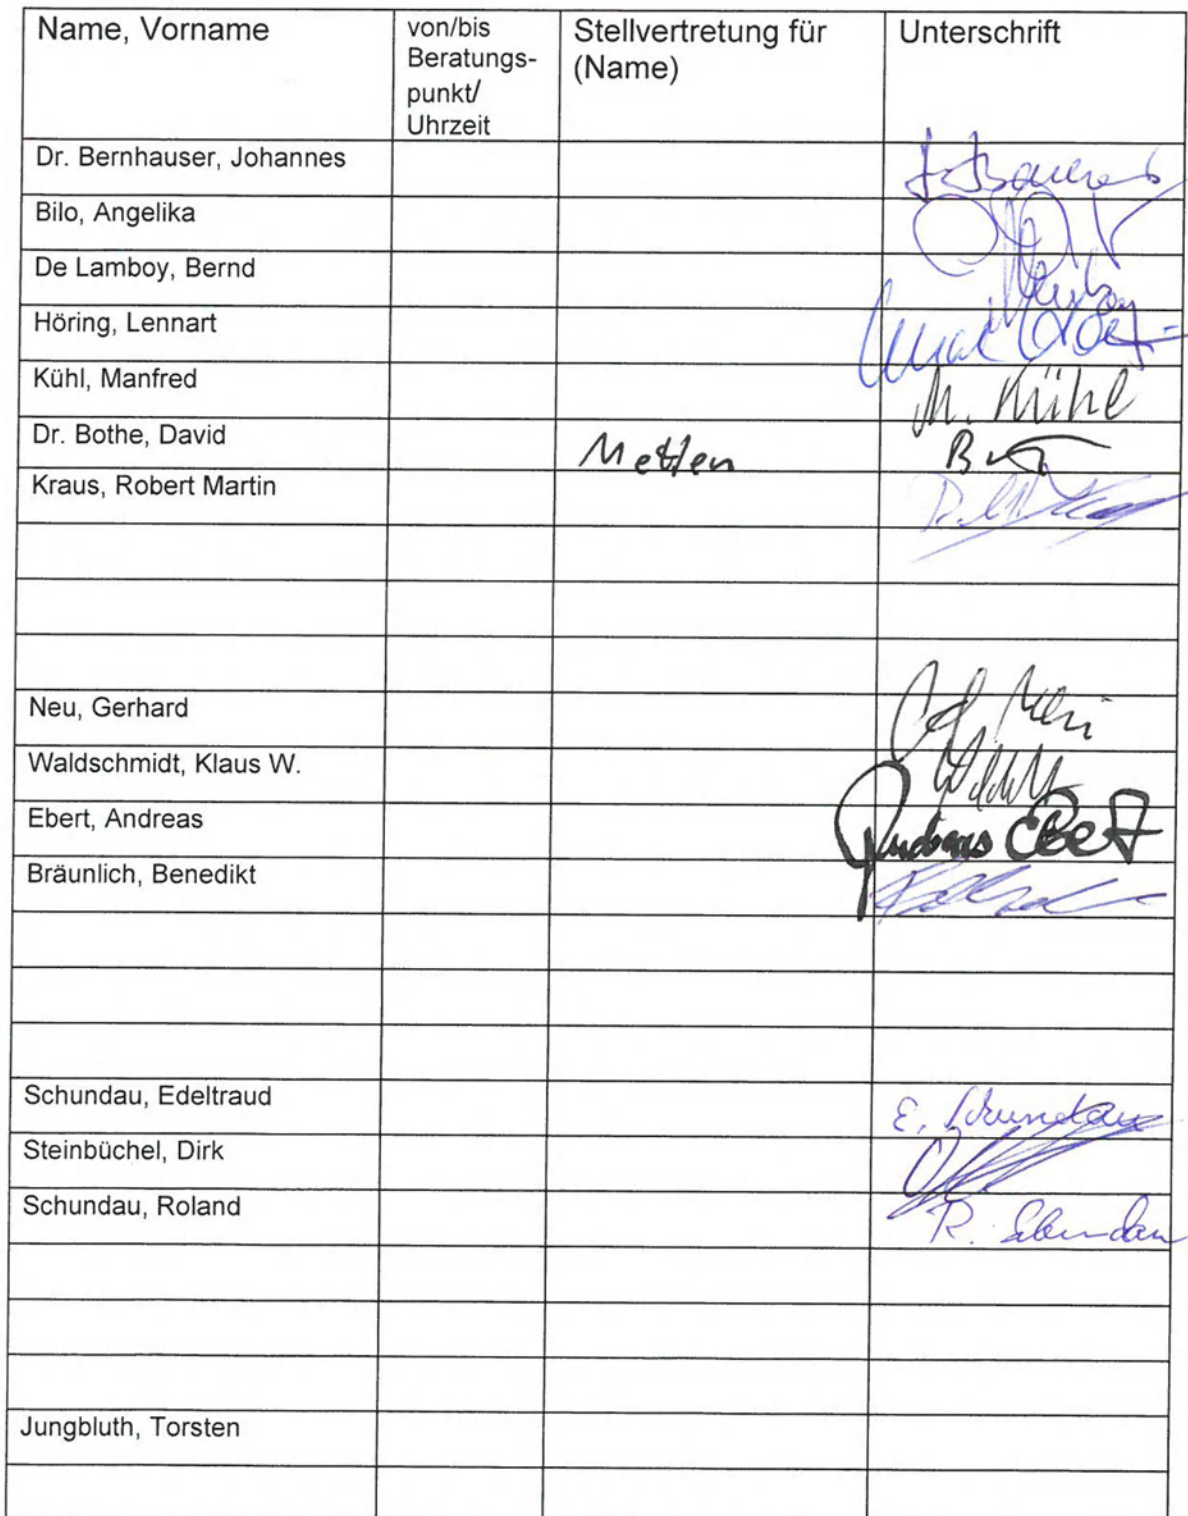 Name, Vorname
von/bis
Beratungs-
punkt/
Uhrzeit
Stellvertretung für
(Name)
Unterschrift
Dr. Bernhauser, Johannes
Bilo, Angelika
De Lamboy, Bernd
Höring, Lennart
Kühl, Manfred M. Kühl
Dr. Bothe, David Metten
Kraus, Robert Martin
Neu, Gerhard
Waldschmidt, Klaus W.
Ebert, Andreas Andreas Ebert
Bräunlich, Benedikt
Schundau, Edeltraud E. Schundau
Steinbüchel, Dirk
Schundau, Roland R. Schundau
Jungbluth, Torsten